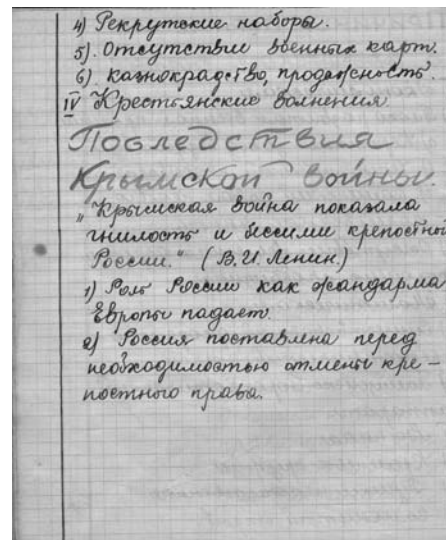 4) Рекрутские наборы.
5). Отсутствие военных карт.
6). казнокрадство, продажность.
IV Крестьянские волнения
Последствия
Крымской войны.
„Крымская война показала
гнилость и бессилие крепостной
России." (В.И. Ленин.)
1) Роль России как жандарма
Европы падает.
2) Россия поставлена перед
необходимостью отмены кре-
постного права.